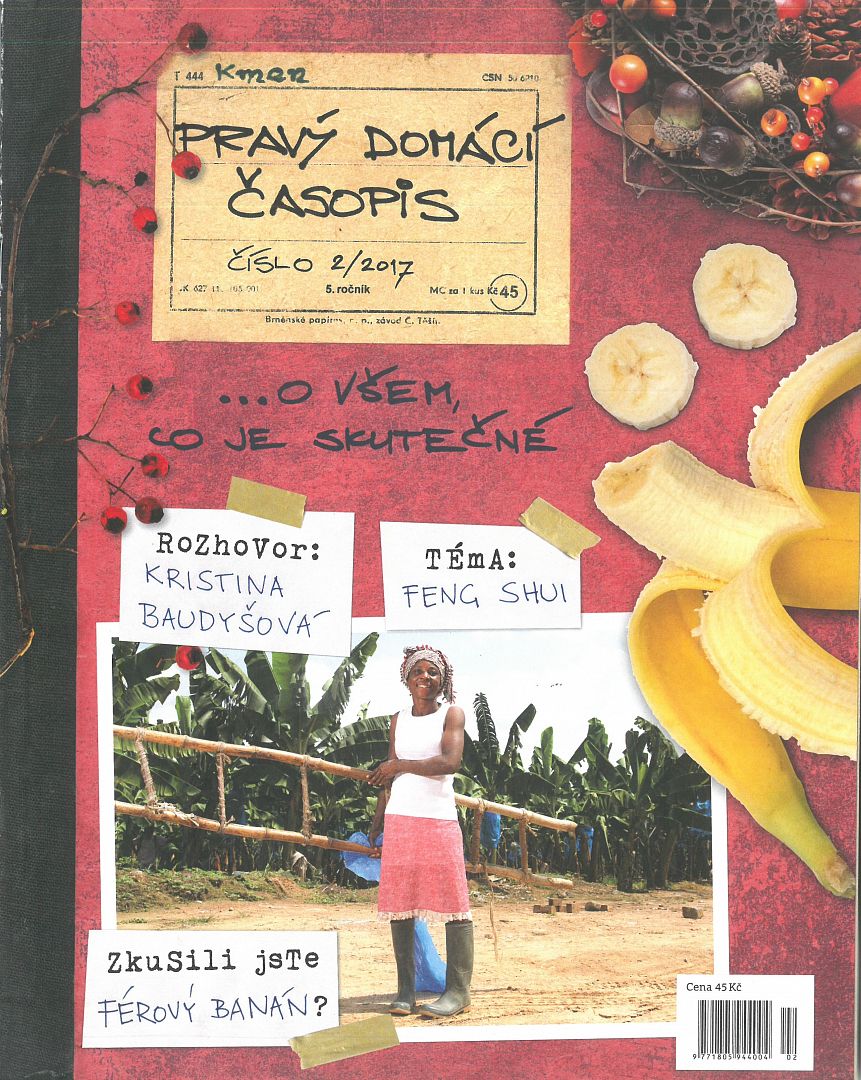 T 444 Kmen ČSN 50 6910
PRAVÝ DOMÁCÍ
ČASOPIS
ČÍSLO 2/2017
5. ročník MC za 1 kus Kč 45
Brněnské papírny, n. p., závod Č. Těšín.
...O VŠEM,
CO JE SKUTEČNÉ
RoZhoVor:
KRISTINA
BAUDYŠOVÁ
TÉmA:
FENG SHUI
ZkuSili jsTe
FÉROVÝ BANÁN?
Cena 45 Kč
9 771805 944004 02